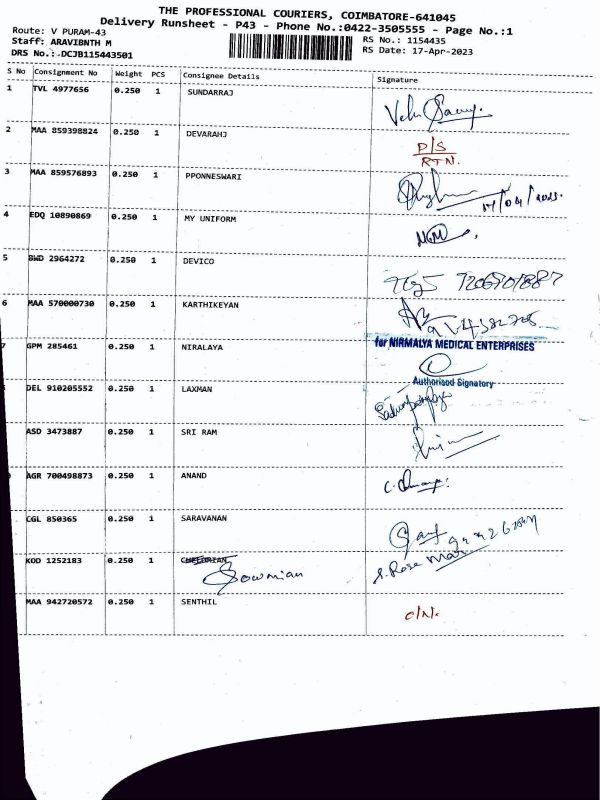 THE PROFESSIONAL COURIERS, COIMBATORE-641045
Delivery Runsheet - P43 - Phone No.:0422-3505555 - Page No.:1
Route: V PURAM-43
Staff: ARAVIBNTH M
DRS No.: DCJB115443501
RS No.: 1154435
RS Date: 17-Apr-2023
S No Consignment No Weight PCS Consignee Details Signature
1 TVL 4977656 0.250 1 SUNDARRAJ
2 MAA 859398824 0.250 1 DEVARAHJ D/S RTN.
3 MAA 859576893 0.250 1 PPONNESWARI 17/04/2023.
4 EDQ 10890869 0.250 1 MY UNIFORM
5 BWD 2964272 0.250 1 DEVICO
6 MAA 570000730 0.250 1 KARTHIKEYAN
for NIRMALYA MEDICAL ENTERPRISES
7 GPM 285461 0.250 1 NIRALAYA
Authorised Signatory
DEL 910205552 0.250 1 LAXMAN
ASD 3473887 0.250 1 SRI RAM
AGR 700498873 0.250 1 ANAND
CGL 850365 0.250 1 SARAVANAN
KOD 1252183 0.250 1 Sowmian S. Rose Mar
MAA 942720572 0.250 1 SENTHIL O/N.